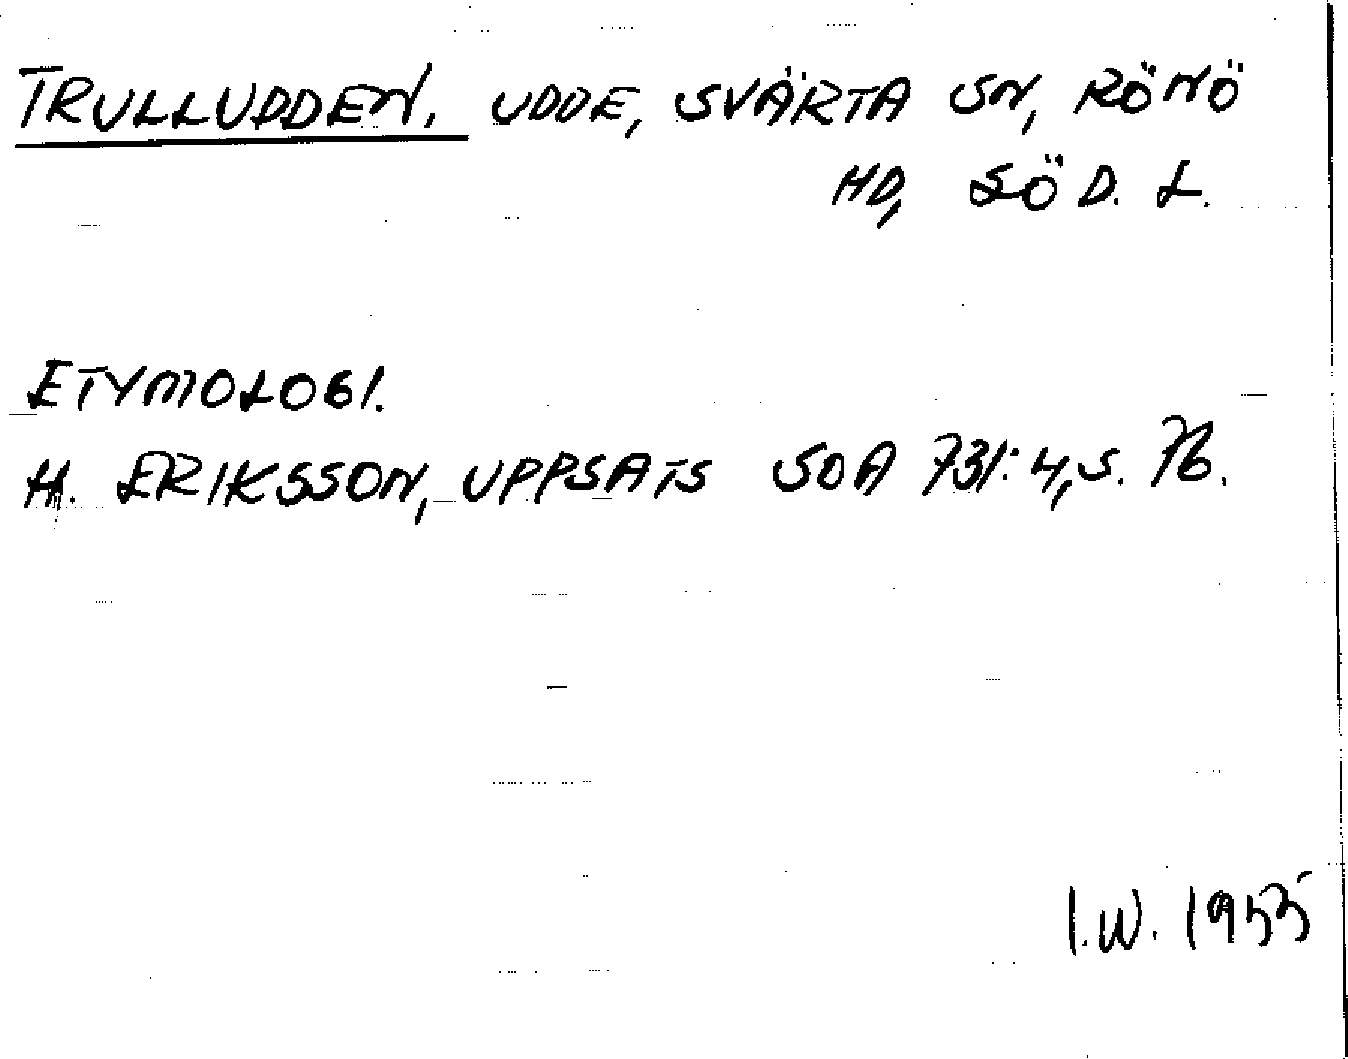 TRULLUDDEN. UDDE, SVÄRTA SN, RÖNÖ
HD, SÖD. L.
ETYMOLOGI.
H. ERIKSSON, UPPSATS SOA 731:4, S. 76.
I.W. 1955